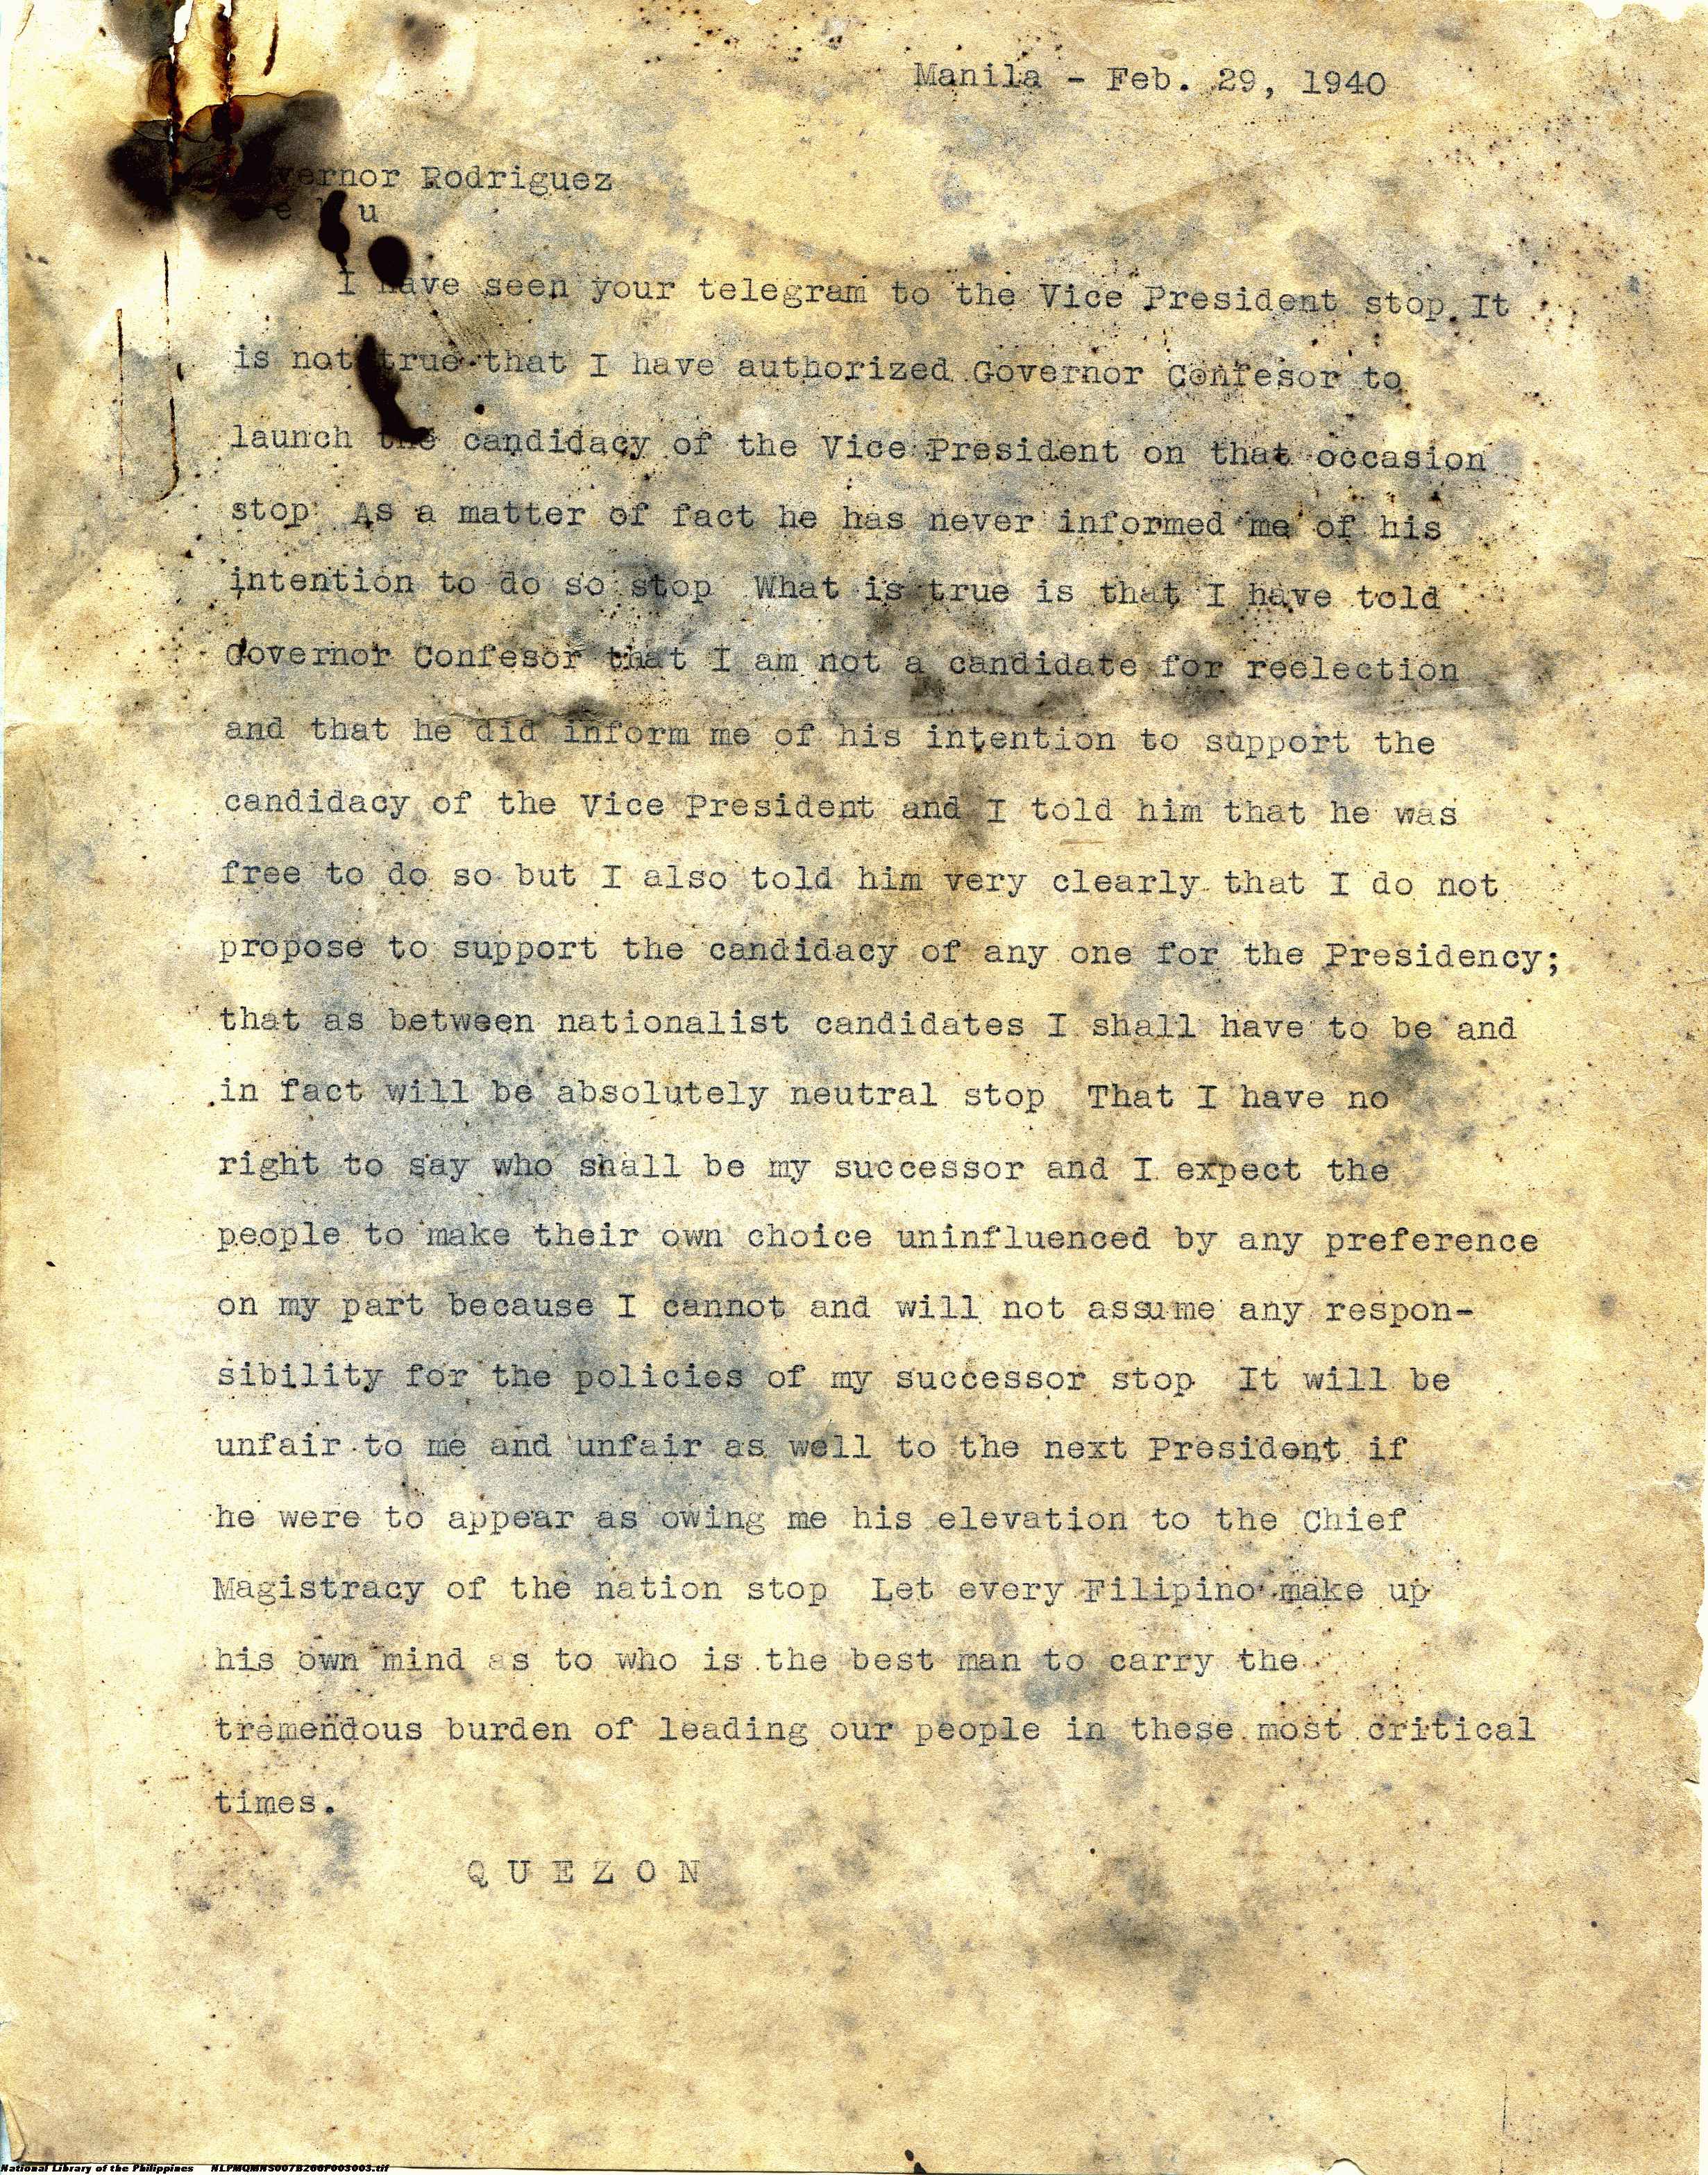 Manila - Feb. 29, 1940
Governor Rodriguez
C e b u
I have seen your telegram to the Vice President stop It
is not true that I have authorized Governor Confesor to
launch the candidacy of the Vice President on that occasion
stop As a matter of fact he has never informed me of his
intention to do so stop What is true is that I have told
Governor Confesor that I am not a candidate for reelection
and that he did inform me of his intention to support the
candidacy of the Vice President and I told him that he was
free to do so but I also told him very clearly that I do not
propose to support the candidacy of any one for the Presidency;
that as between nationalist candidates I shall have to be and
in fact will be absolutely neutral stop That I have no
right to say who shall be my successor and I expect the
people to make their own choice uninfluenced by any preference
on my part because I cannot and will not assume any respon-
sibility for the policies of my successor stop It will be
unfair to me and unfair as well to the next President if
he were to appear as owing me his elevation to the Chief
Magistracy of the nation stop Let every Filipino make up
his own mind as to who is the best man to carry the
tremendous burden of leading our people in these most critical
times.
Q U E Z O N
National Library of the Philippines NLPMQMNS007B266F003003.tif